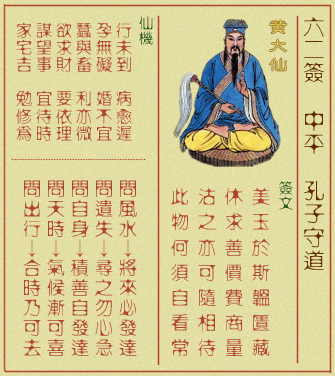 六二簽 中平 孔子守道
黃大仙
簽文
美玉於斯韞匱藏
休求善價費商量
沽之亦可隨相待
此物何須自看常
仙機
行未到 病愈遲
孕無礙 婚不宜
蠶與畜 利亦微
欲求財 要依理
謀望事 宜待時
家宅吉 勉修為
問風水→將來必發達
問遺失→尋之勿心急
問自身→積善自發達
問天時→氣候漸可喜
問出行→合時乃可去